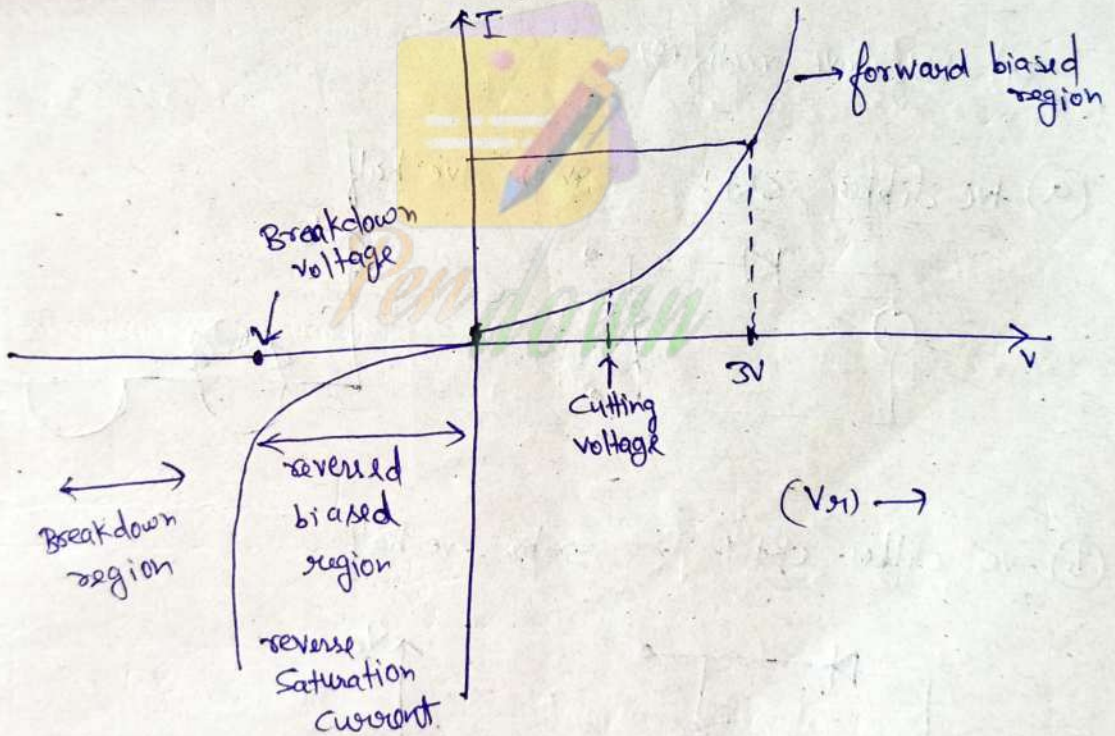 I
→ forward biased
region
Breakdown
voltage
Pendown
3V
V
Cutting
voltage
(Vr) →
reversed
biased
region
Breakdown
region
reverse
Saturation
current.